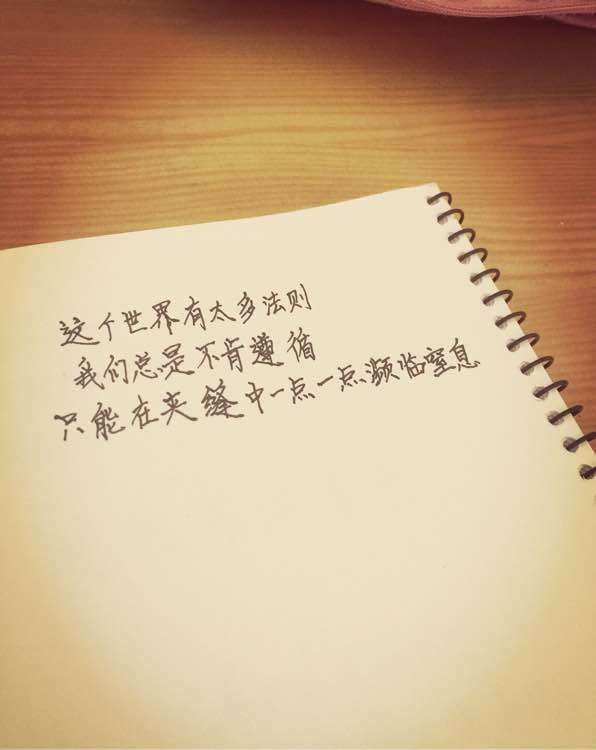 这个世界有太多法则
我们总是不肯遵循
只能在夹缝中一点一点濒临窒息